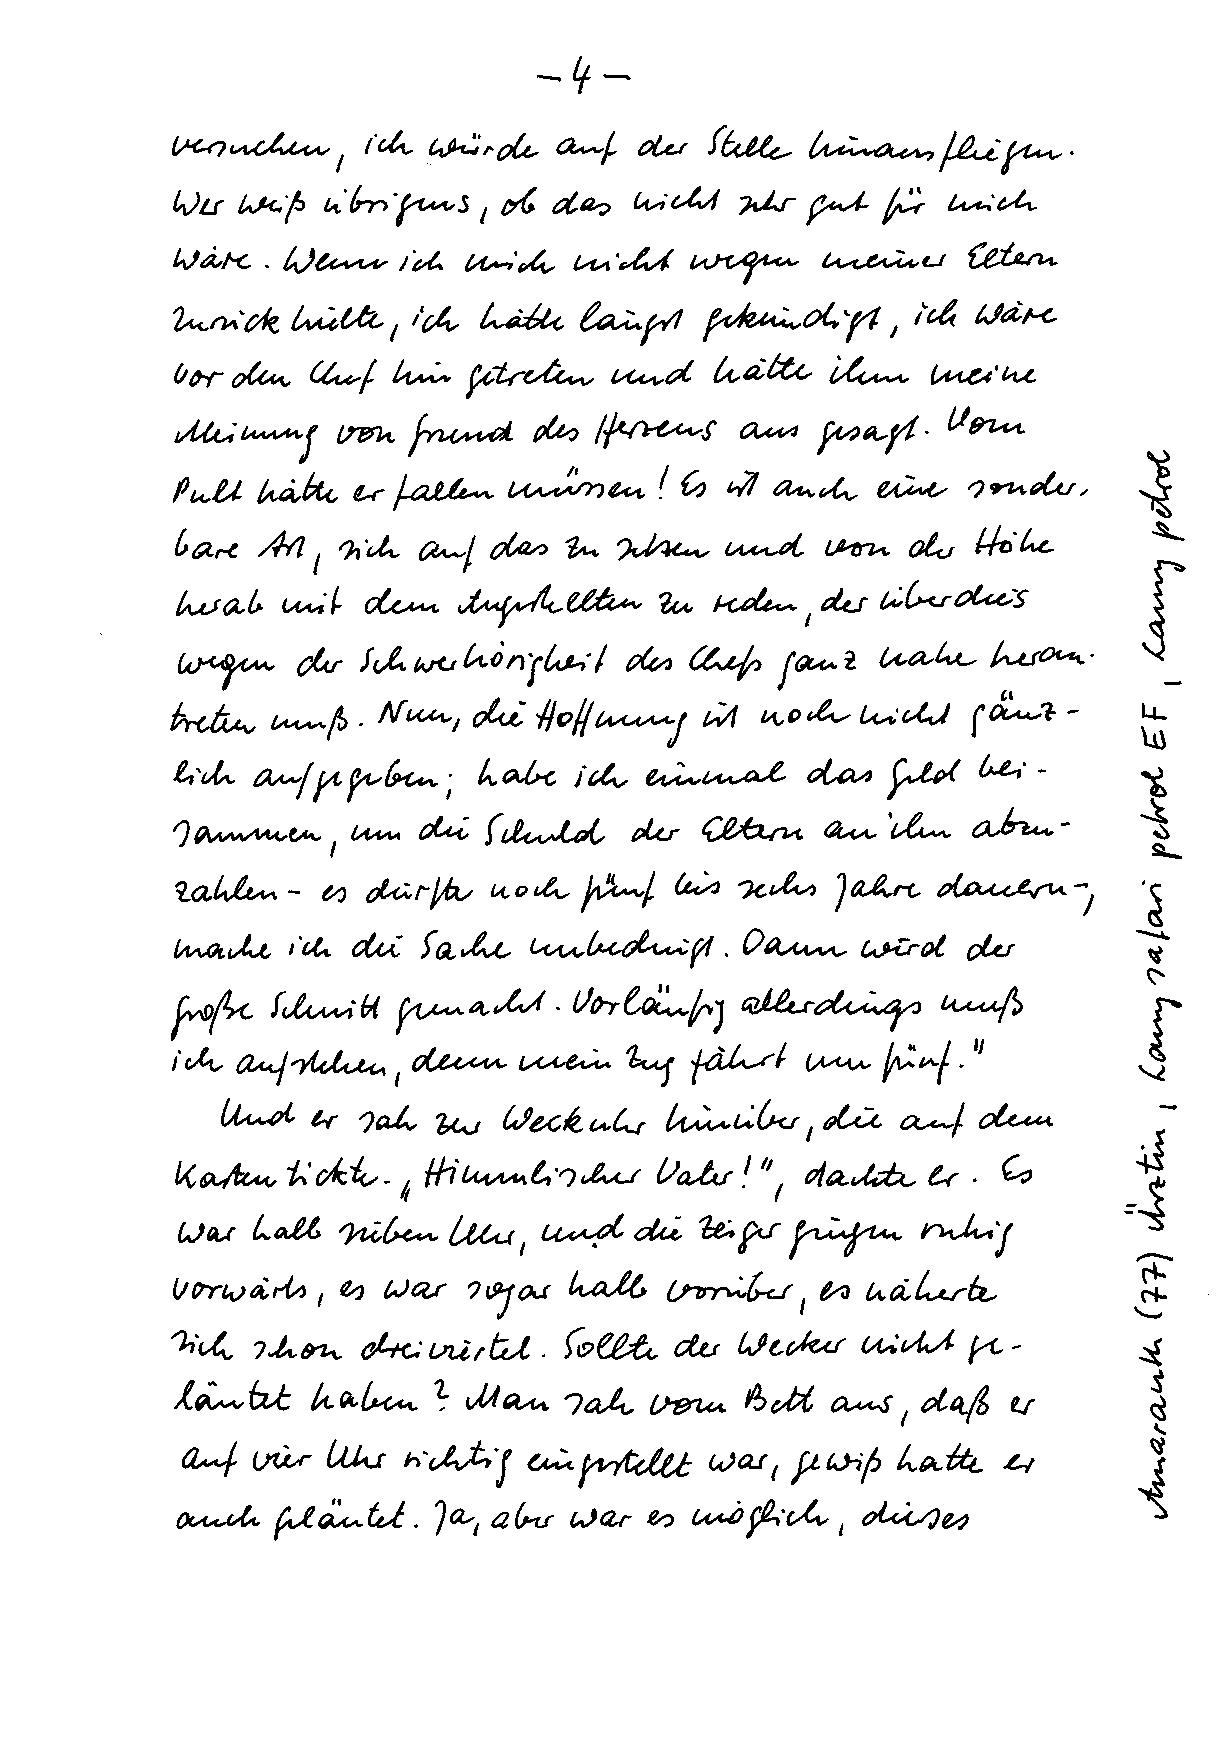 – 4 –
versuchen, ich würde auf der Stelle hinausfliegen.
Wer weiß übrigens, ob das nicht sehr gut für mich
wäre. Wenn ich mich nicht wegen meiner Eltern
zurückhielte, ich hätte längst gekündigt, ich wäre
vor den Chef hin getreten und hätte ihm meine
Meinung von Grund des Herzens aus gesagt. Vom
Pult hätte er fallen müssen! Es ist auch eine sonder-
bare Art, sich auf das zu setzen und von der Höhe
herab mit dem Angestellten zu reden, der überdies
wegen der Schwerhörigkeit des Chefs ganz nahe heran-
treten muß. Nun, die Hoffnung ist noch nicht gänz-
lich aufgegeben; habe ich einmal das Geld bei-
sammen, um die Schuld der Eltern an ihn abzu-
zahlen – es dürfte noch fünf bis sechs Jahre dauern –,
mache ich die Sache unbedingt. Dann wird der
große Schnitt gemacht. Vorläufig allerdings muß
ich aufstehen, denn mein Zug fährt um fünf."
Und er sah zur Weckuhr hinüber, die auf dem
Kasten tickte. „Himmlischer Vater!", dachte er. Es
war halb sieben Uhr, und die Zeiger gingen ruhig
vorwärts, es war sogar halb vorüber, es näherte
sich schon dreiviertel. Sollte der Wecker nicht ge-
läutet haben? Man sah vom Bett aus, daß er
auf vier Uhr richtig eingestellt war, gewiß hatte er
auch geläutet. Ja, aber war es möglich, dieses
Amaranth (77) Ärztin, Lamy safari petrol EF, Lamy petrol